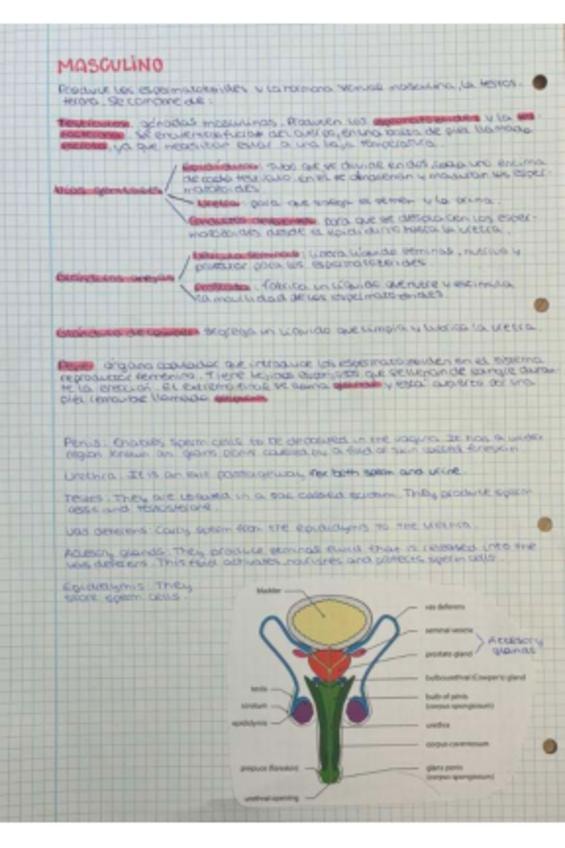 MASCULINO
Produce los espermatozoides y la hormona sexual masculina, la testos-
terona. Se compone de:
Testículos: gónadas masculinas. Producen los espermatozoides y la tes-
tosterona. Se encuentran fuera del cuerpo, en una bolsa de piel llamada
escroto, ya que necesitan estar a una baja temperatura.
Vías genitales
Epidídimo: tubo que se divide en dos, cada uno encima
de cada testículo, en él se almacenan y maduran los esper-
matozoides
Uretra: para que salga el semen y la orina.
Conductos deferentes: para que se desplacen los esper-
matozoides desde el epidídimo hasta la uretra.
Glándulas anejas
Vesícula seminal: libera líquido seminal, nutritivo y
protector para los espermatozoides
Próstata: fabrica un líquido que nutre y estimula
la movilidad de los espermatozoides
Glándula de Cowper: segrega un líquido que limpia y lubrica la uretra.
Pene: órgano copulador que introduce los espermatozoides en el sistema
reproductor femenino. Tiene tejidos que se llenan de sangre duran-
te la erección. El extremo final se llama glande y está cubierto por una
piel llamada prepucio
Penis: Enables sperm cells to be deposited in the vagina. It has a wider
region known as glans penis covered by a fold of skin called foreskin
Urethra: It is an exit passageway for both sperm and urine.
Testes: They are located in a sac called scrotum. They produce sperm
cells and testosterone.
Vas deferens: Carry sperm from the epididymis to the urethra.
Accesory glands: They produce seminal fluid that is released into the
vas deferens. This fluid activates, nourishes and protects sperm cells.
Epididymis: They
store sperm cells.
bladder
vas deferens
seminal vesicle
Accesory
glands
prostate gland
bulbourethral (Cowper's) gland
testis
bulb of penis
(corpus spongiosum)
scrotum
epididymis
urethra
corpus cavernosum
prepuce (foreskin)
glans penis
(corpus spongiosum)
urethral opening